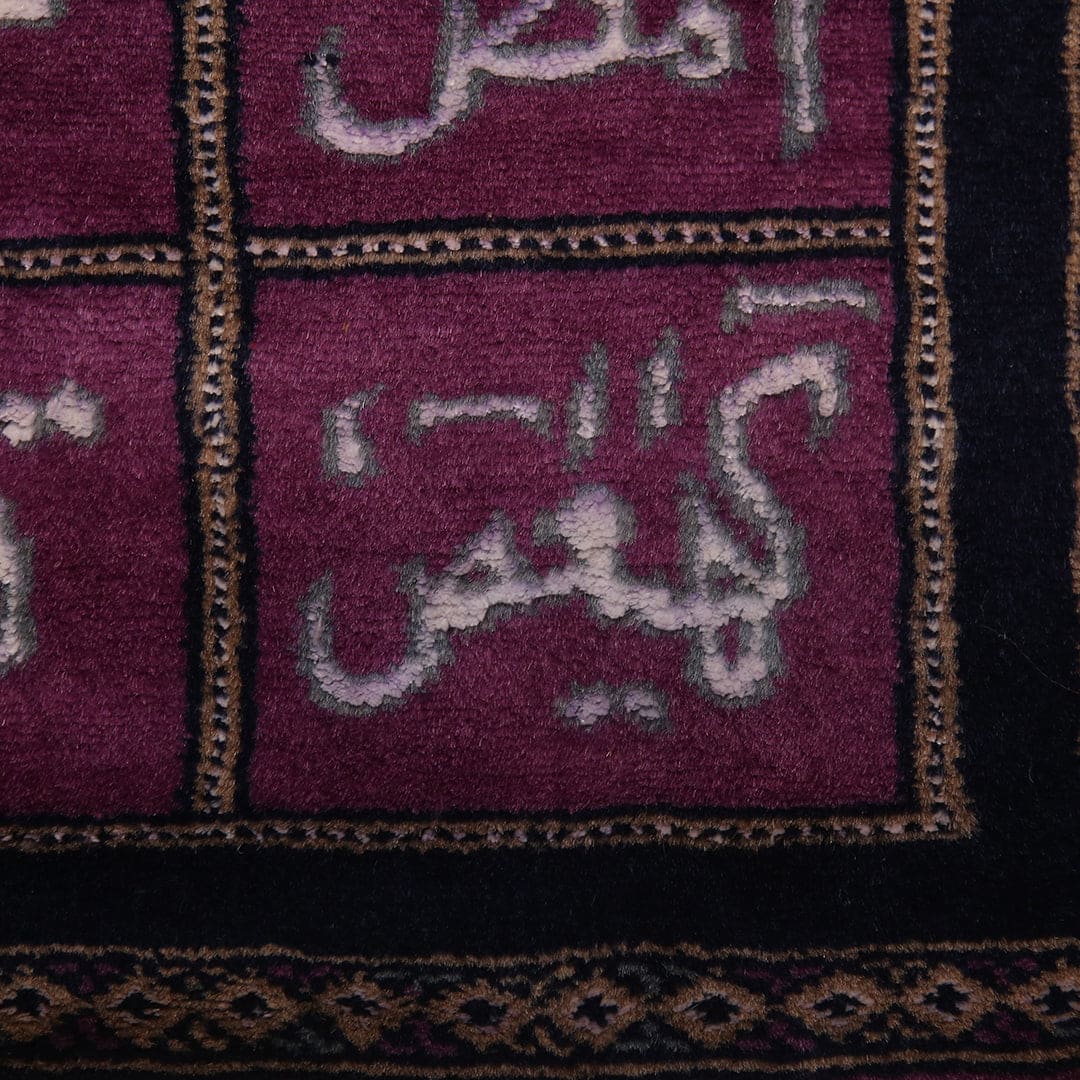 المص
كهيعص